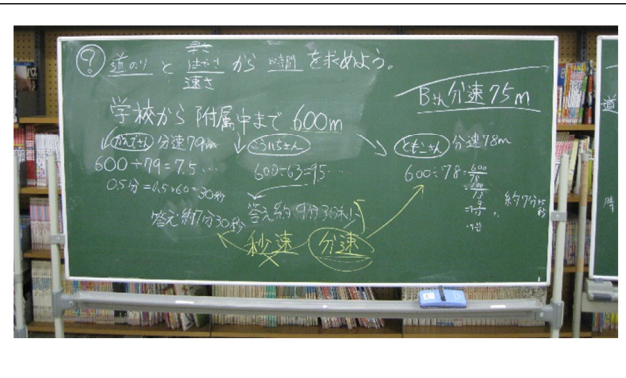 ? 道のりと はやさ から 時間 を求めよう。
速さ
Bさん分速75m
学校から附属中まで600m
分速79m
600÷79=7.5…
0.5分=0.5×60=30秒
答え 約7分30秒
こういちさん
600÷63=95…
答え約9分30秒
ともこさん 分速78m
600÷78=600/78
約7分
秒速 分速
道